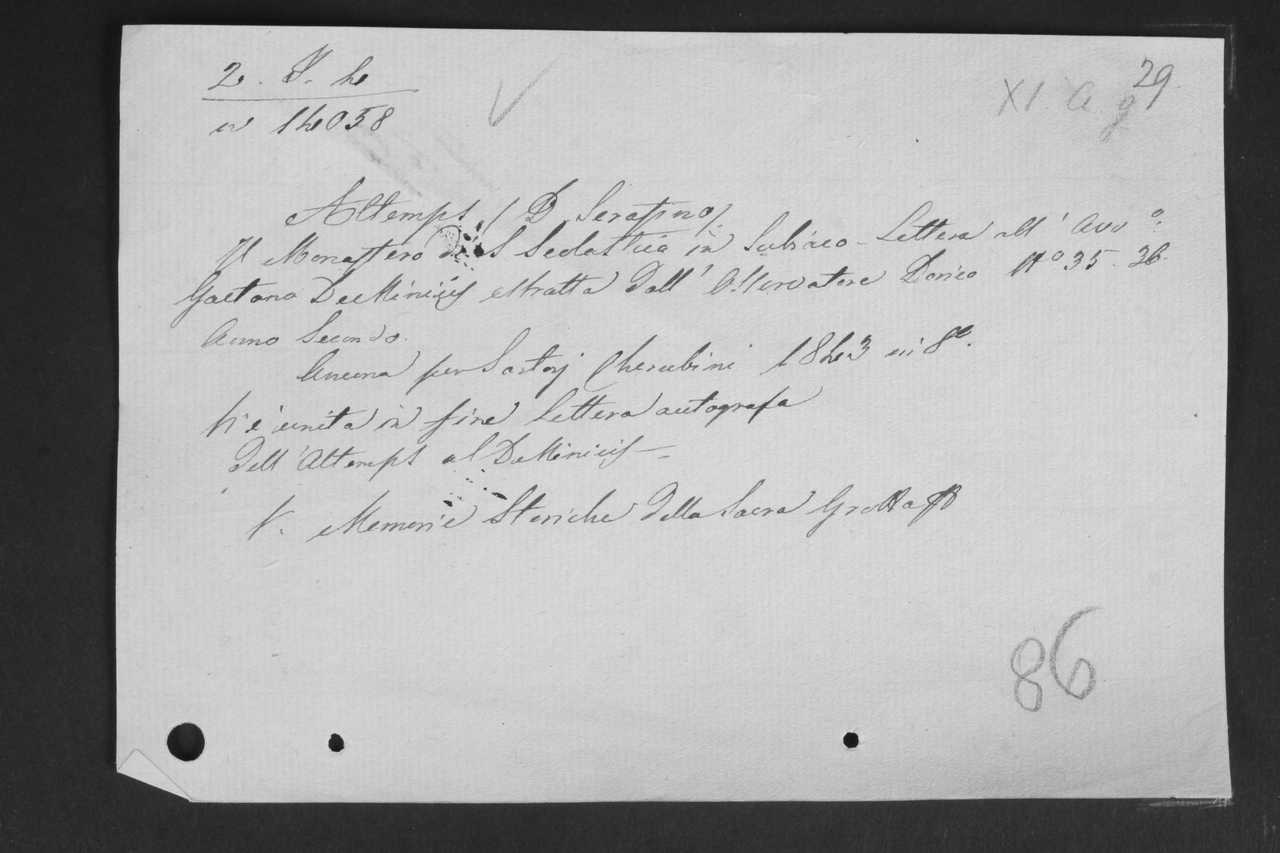 2. V. 4
n 14058
XI a g 29.
Altemps (D. Serafino)
Il Monastero di S Scolastica in Subiaco - Lettera all' Avv.º
Gaetano DeMinicis estratta dall' Osservatore Dorico Nº 35. 36.
Anno Secondo.
Ancona per Sartorj Cherubini 1843 in 8º.
Vi è unita in fine lettera autografa
dell' Altemps al DeMinicis -
V. Memorie Storiche della Sacra Grotta
86